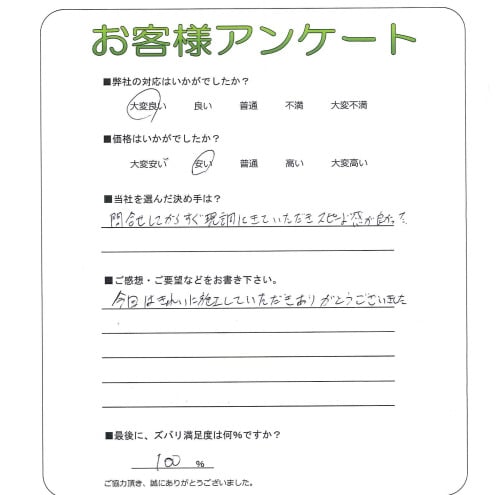 お客様アンケート
■弊社の対応はいかがでしたか？
大変良い　良い　普通　不満　大変不満
■価格はいかがでしたか？
大変安い　安い　普通　高い　大変高い
■当社を選んだ決め手は？
問合せしてからすぐ現調にきていただきスピード感が良かった
■ご感想・ご要望などをお書き下さい。
今日はきれいに施工していただきありがとうございました
■最後に、ズバリ満足度は何%ですか？
100 %
ご協力頂き、誠にありがとうございました。